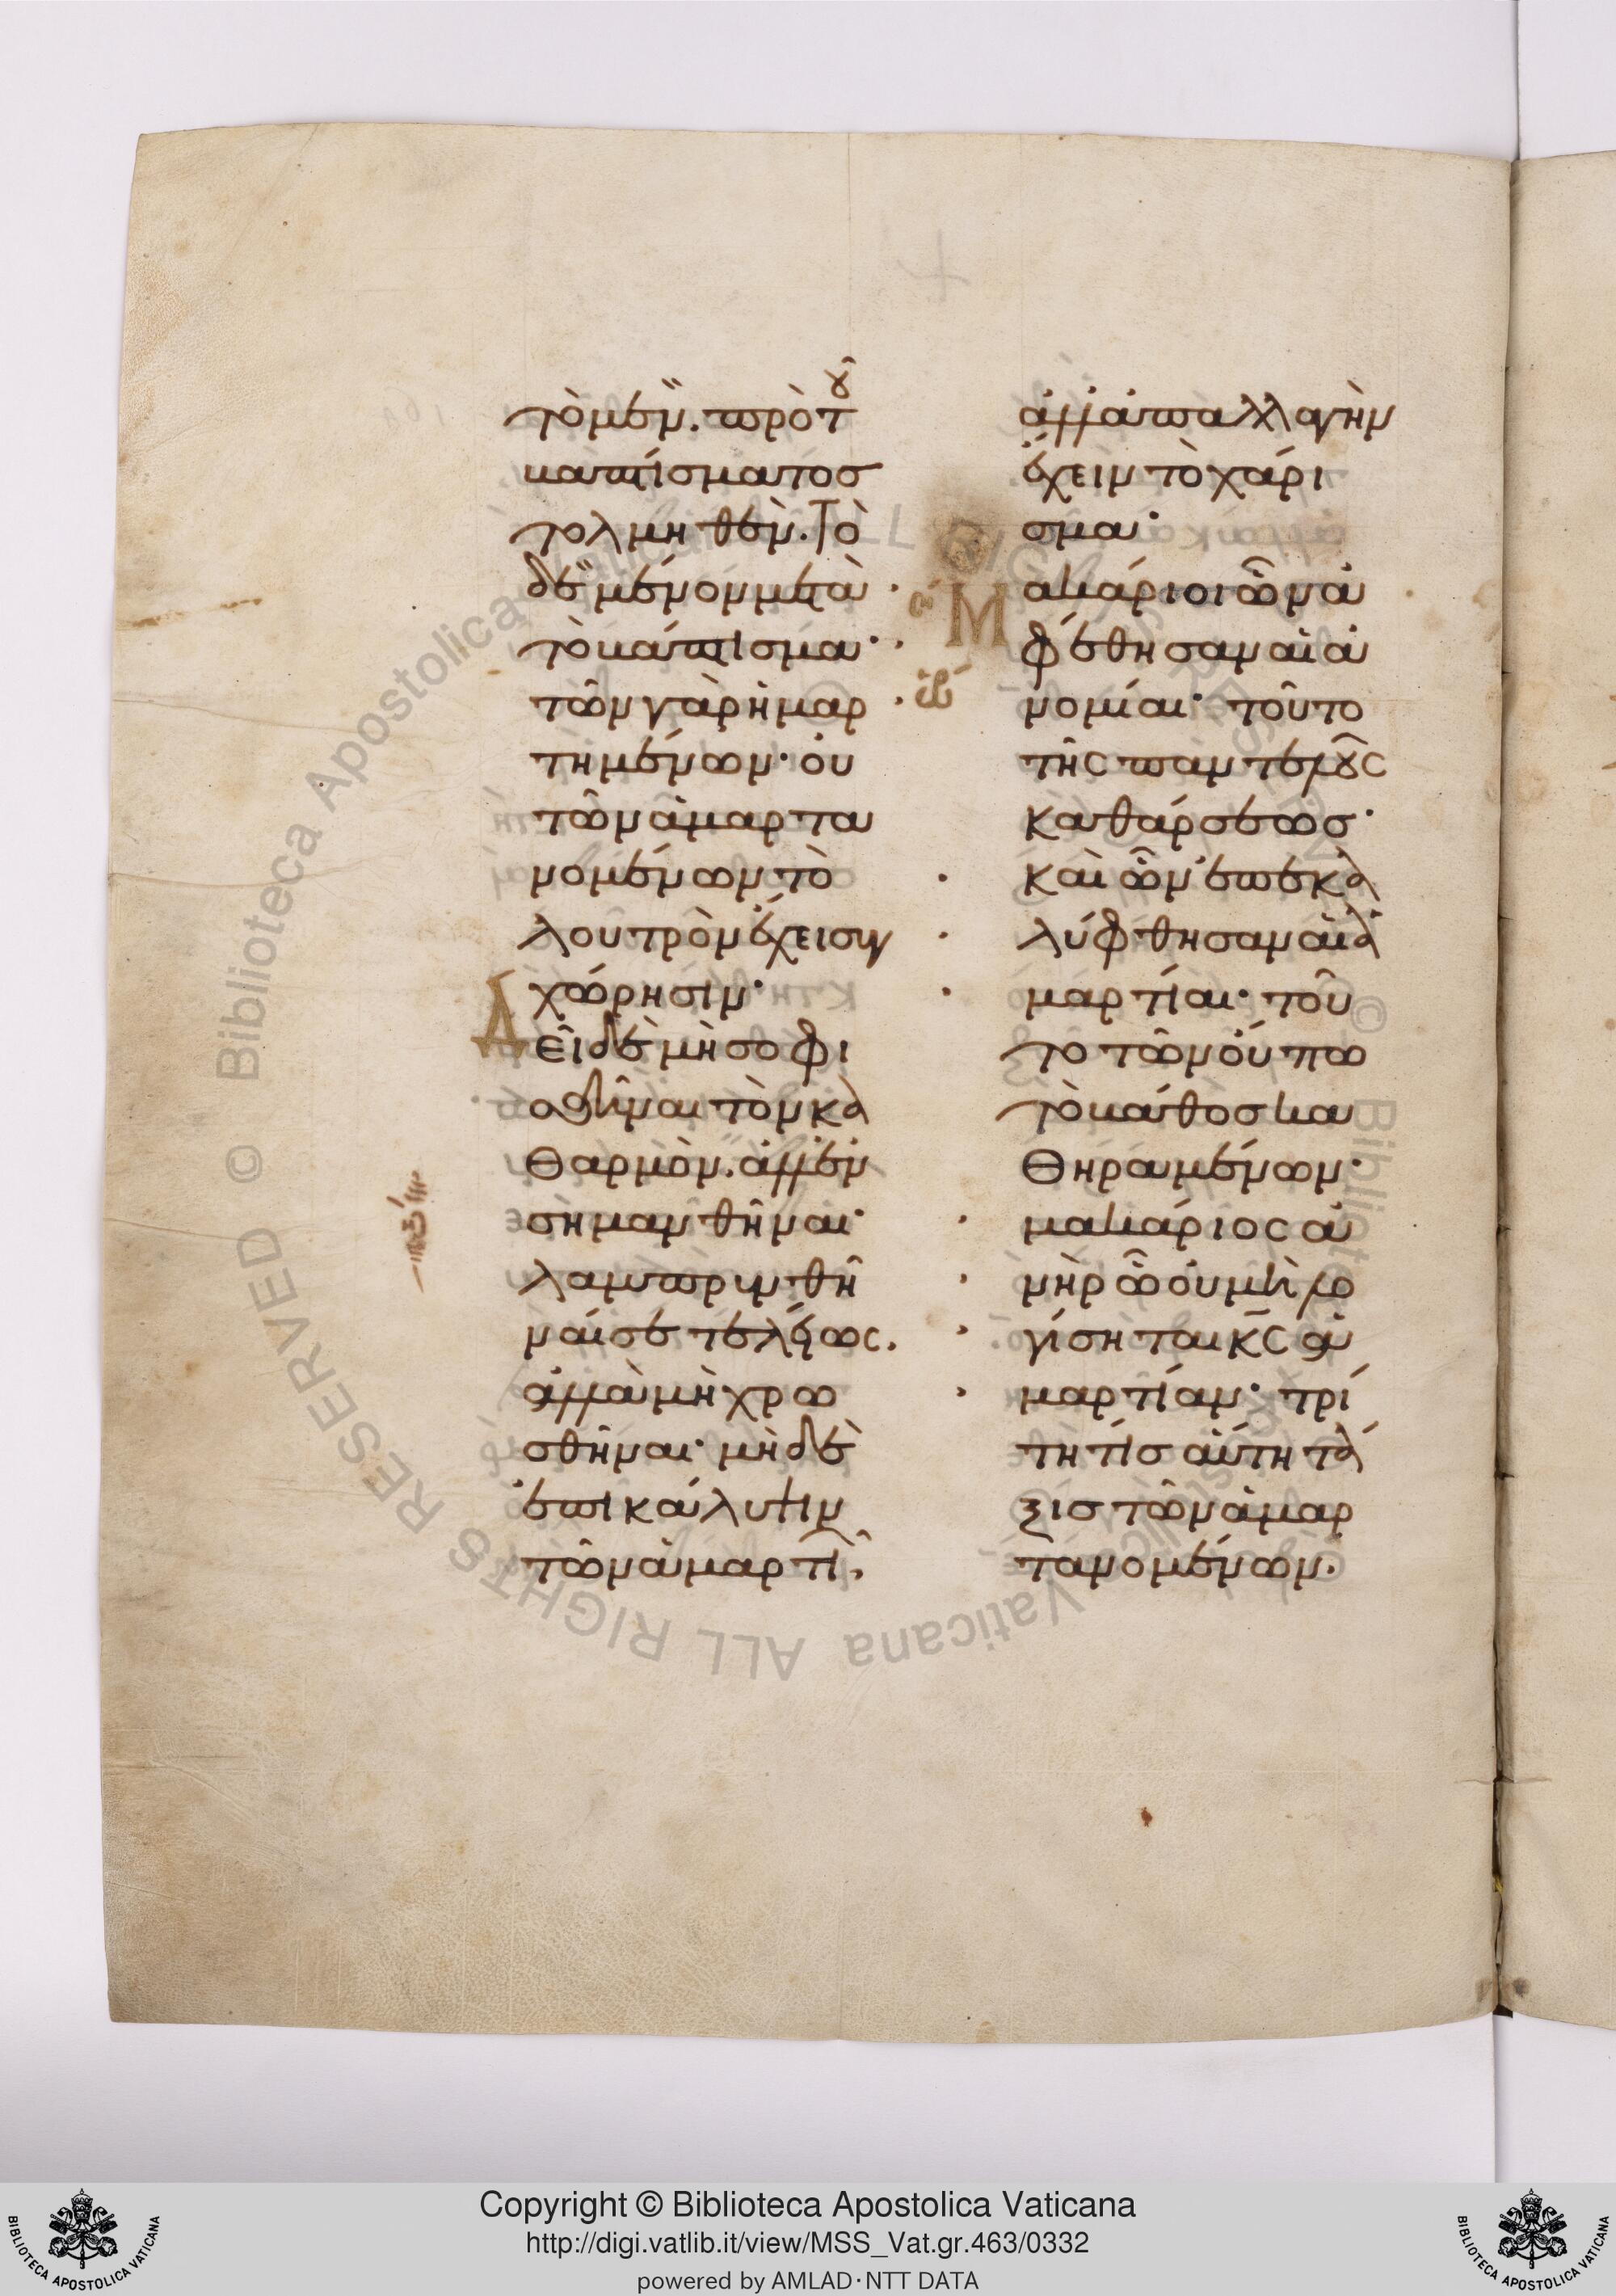 τὸ μὲν. πρὸ τοῦ
βαπτίσματος
τολμηθέν. Τὸ
δὲ μένον μετὰ
τὸ βάπτισμα·
τῶν γὰρ ἡμαρ
τημένων· οὐ
τῶν ἁμαρτα
νομένων τὸ
λουτρὸν ἔχει συγ
χώρησιν·
Δεῖ δὲ μὴ σοφι
σθῆναι τὸν κα
θαρμὸν. ἀλλ' ἐν
σημανθῆναι·
λαμπρυνθῆ
ναί σε τελέως.
ἀλλὰ μὴ χρω
σθῆναι· μὴ δὲ
ἐπικάλυψιν
τῶν ἁμαρτι,
ἀλλ' ἀπαλλαγὴν
ἔχειν τὸ χάρι
σμα·
Μακάριοι ὧν ἀ
φέθησαν αἱ ἀ
νομίαι· τοῦτο
τῆς παντελοῦς
καθάρσεως·
καὶ ὧν ἐπεκα
λύφθησαν αἱ ἁ
μαρτίαι· τοῦ
το τῶν οὔπω
τὸ βάθος κα
θηραμένων·
μακάριος ἀ
νὴρ ᾧ οὐ μὴ λο
γίσηται κ̅ς̅ ἁ
μαρτίαν· τρί
τη τίς αὕτη τά
ξις τῶν ἁμαρ
τανομένων.
Copyright © Biblioteca Apostolica Vaticana
http://digi.vatlib.it/view/MSS_Vat.gr.463/0332
powered by AMLAD·NTT DATA